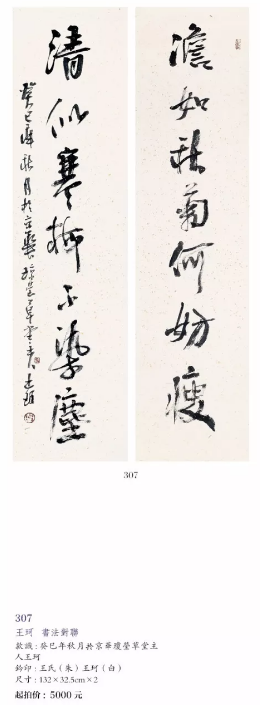 澹如秋菊何妨瘦
清似寒梅不染塵
癸巳年秋月於京華瓊瑩草堂主人王珂
307
307
王珂 書法對聯
款識:癸巳年秋月於京華瓊瑩草堂主
人王珂
鈐印:王氏(朱)王珂(白)
尺寸:132×32.5cm×2
起拍價:5000元